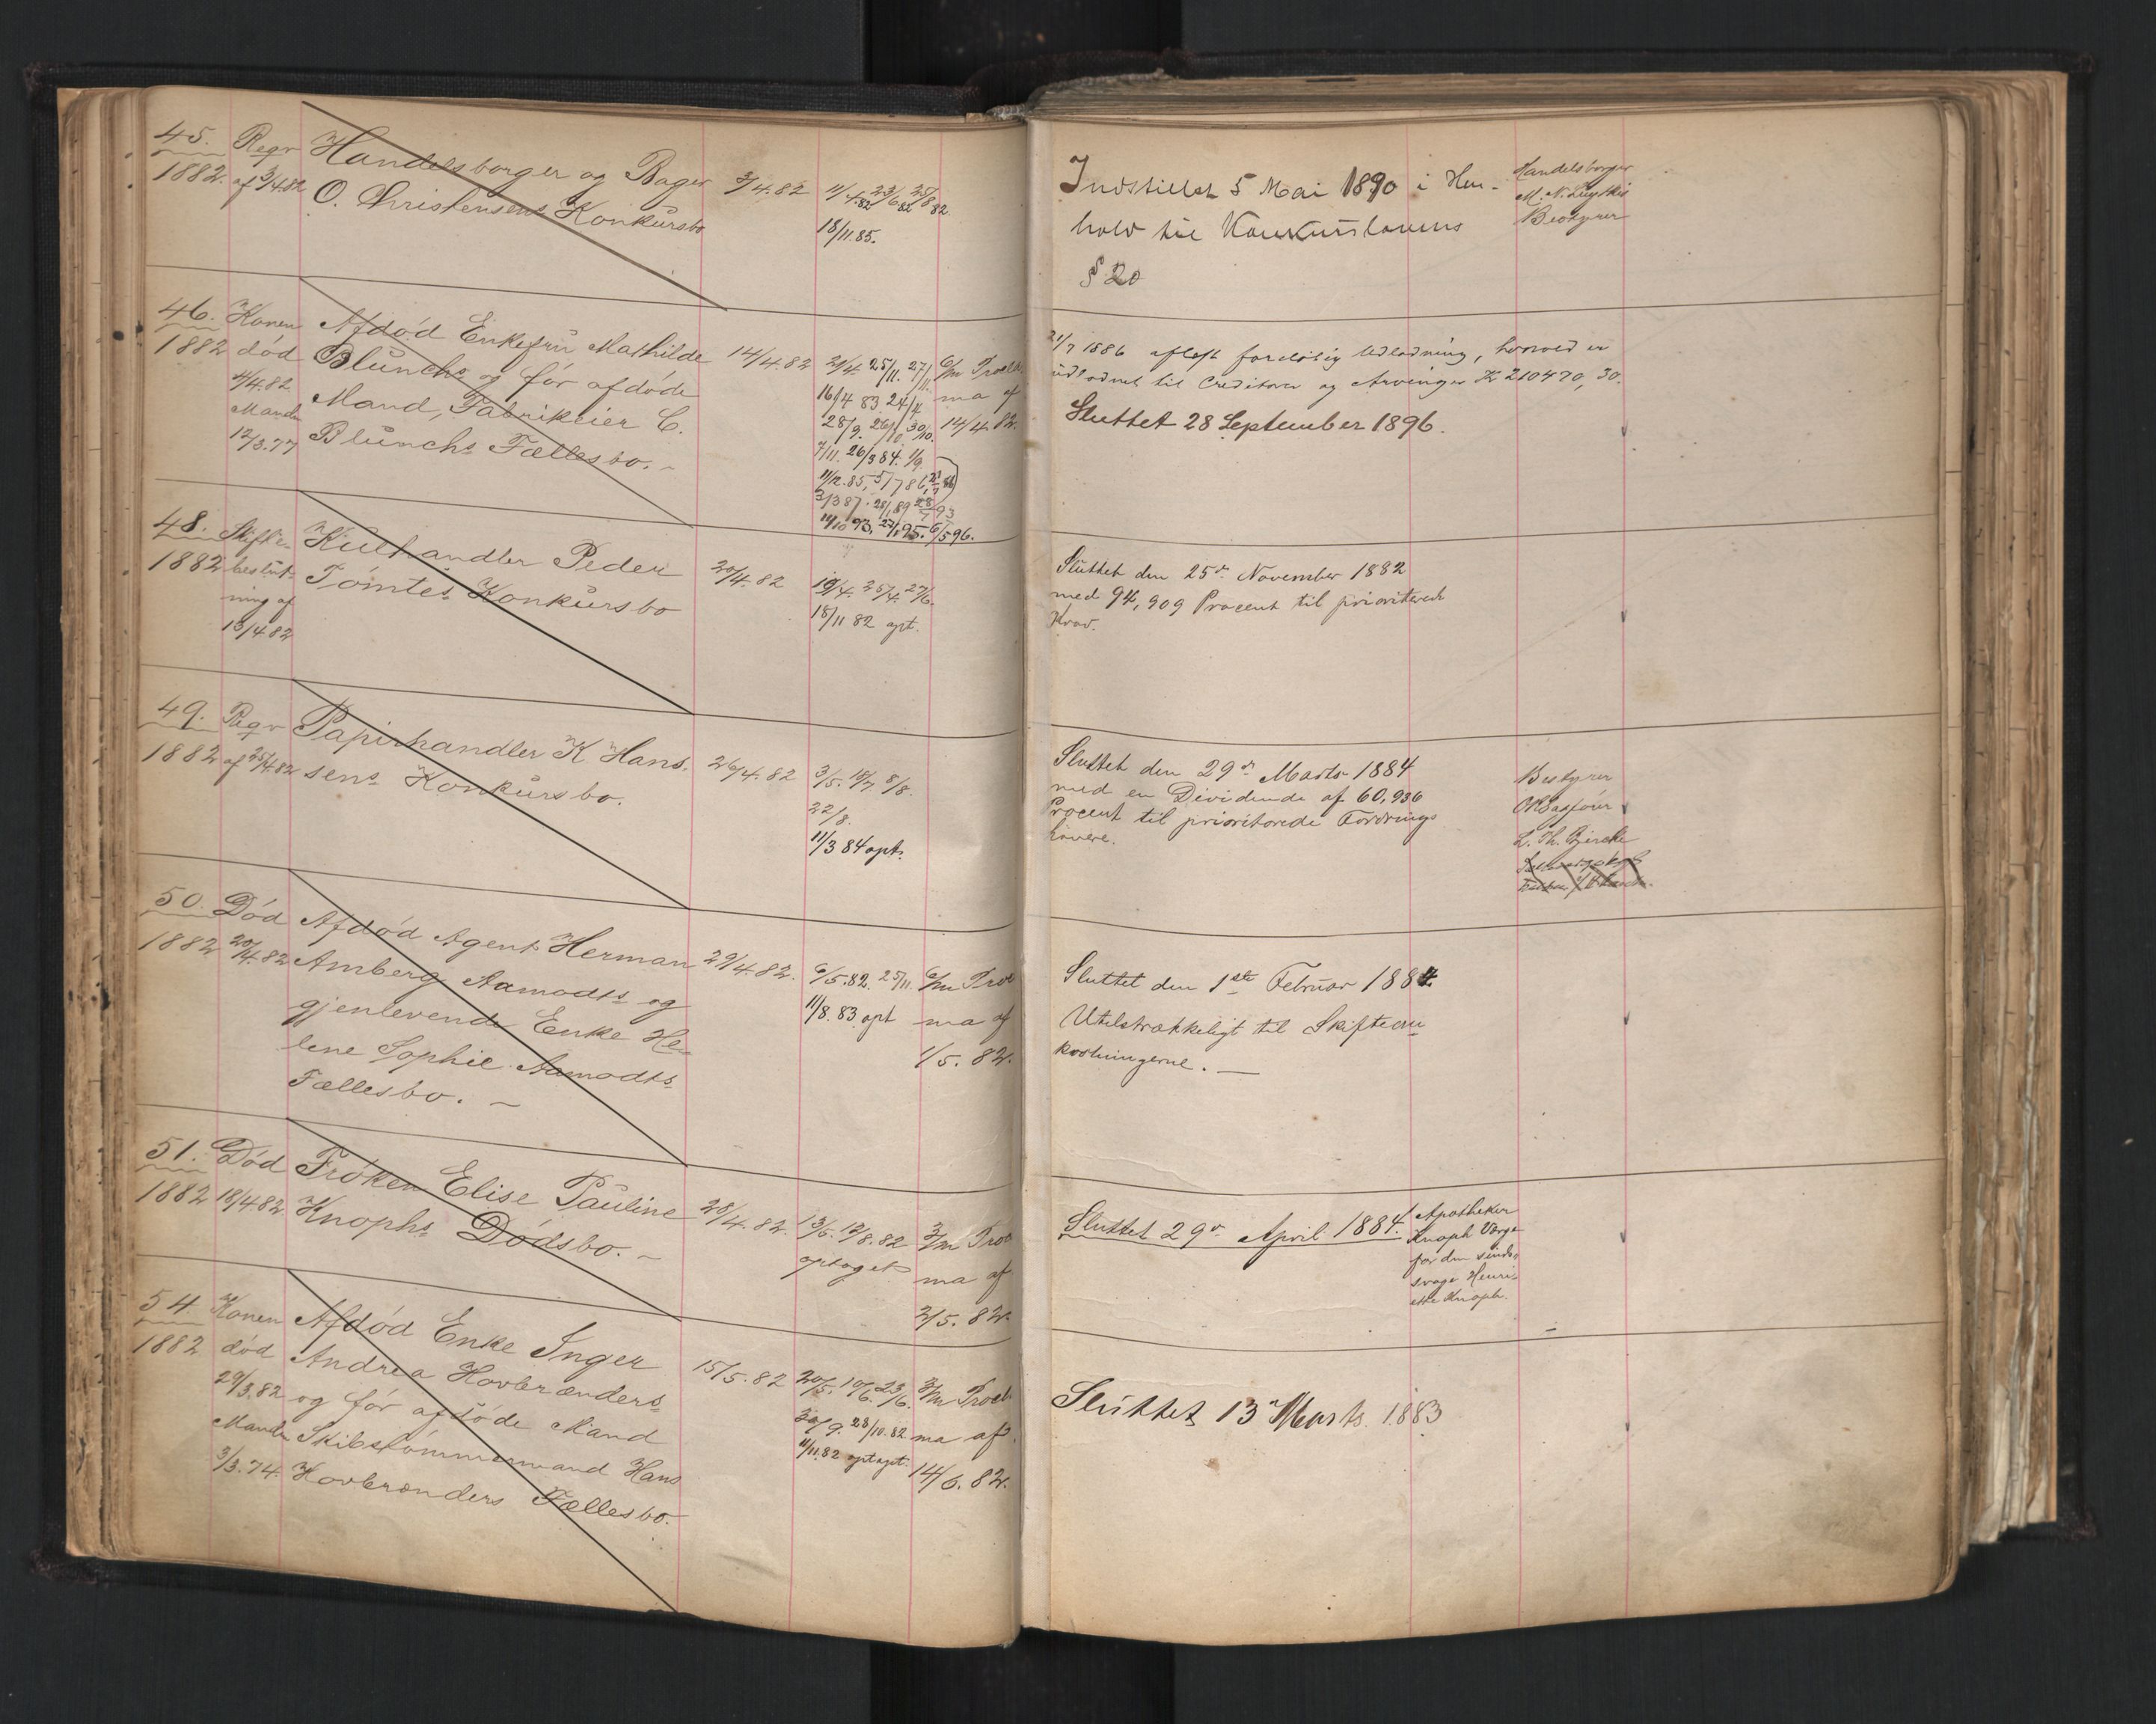 45. Regr Handelsborger og Bager 3/4.82 11/4.82 23/6 82 25/8 82.
1882. af 3/4.82 O. Christensens Konkursbo 18/11.85.
Indstillet 5 Mai 1890 i Hen-
hold til Konkurslovens
§ 20
Handelsborger
Bestyrer
46. Konen Afdød Enkefru Mathilde 14/4.82 21/4 25/11. 27/11. 6/m Procla
1882 død Blunchs og før afdøde 16/4 83 24/4 ma af
11/4.82. Mand, Fabrikeier C. 28/9. 26/10. 30/10. 14/4.82.
Manden Blunchs Fællesbo. 7/11. 26/3 84. 1/9.
12/3.77 11/12.85, 5/7 86,
3/3 87. 28/1 89 28/7 93
11/10 93, 6/5 96.
21/7 1886 afholdt foreløbig Udlodning, hvorved er
udlodnet til Creditorer og Arvinger K 210470,30.
Sluttet 28 September 1896.
48. Skifte- Kulhandler Peder 20/4.82 19/4. 25/4. 27/6.
1882 beslut- Tømtes Konkursbo 18/11 82 opt.
ning af
13/4 82
Sluttet den 25de November 1882
med 94,909 Procent til prioriterede
Krav.
49. Regr Papirhandler K Hans- 26/4.82 3/5. 18/7 8/8.
1882 af 25/4.82 sens Konkursbo. 22/8.
11/3 84 opt.
Sluttet den 29de Marts 1884
med en Dividende af 60,936
Procent til prioriterede Fordrings
havere.
Bestyrer
L. Th. Gjercke
50. Død Afdød Agent Herman 29/4.82. 6/5.82. 25/11. 6/m Proc
1882 20/4.82 Amberg Aamodts og 11/8.83 opt ma af
gjenlevende Enke He- 1/5.82.
lene Sophie Aamodts
Fællesbo.
Sluttet den 1ste Februar 1884.
Utilstrækkeligt til Skifteom
kostningerne.
51. Død Frøken Elise Pauline 28/4.82. 13/6. 12/8.82 3/m Proc
1882 18/4.82. Knophs Dødsbo. optaget ma af
2/5.82.
Sluttet 29de April 1884.
Apotheker
Knoph Værge
for den sinds-
svage Henri-
ette Knoph.
54. Konen Afdød Enke Inger 15/5.82 20/5. 10/6. 23/6. 3/m Procl
1882 død Andrea Hovbrænders 30/9. 28/10.82 ma af
29/3.82 og før afdøde Mand 11/11.82 optagt. 14/6.82.
Manden Skibstømmermand Hans
3/3.74. Hovbrænders Fællesbo.
Sluttet 13de Marts 1883